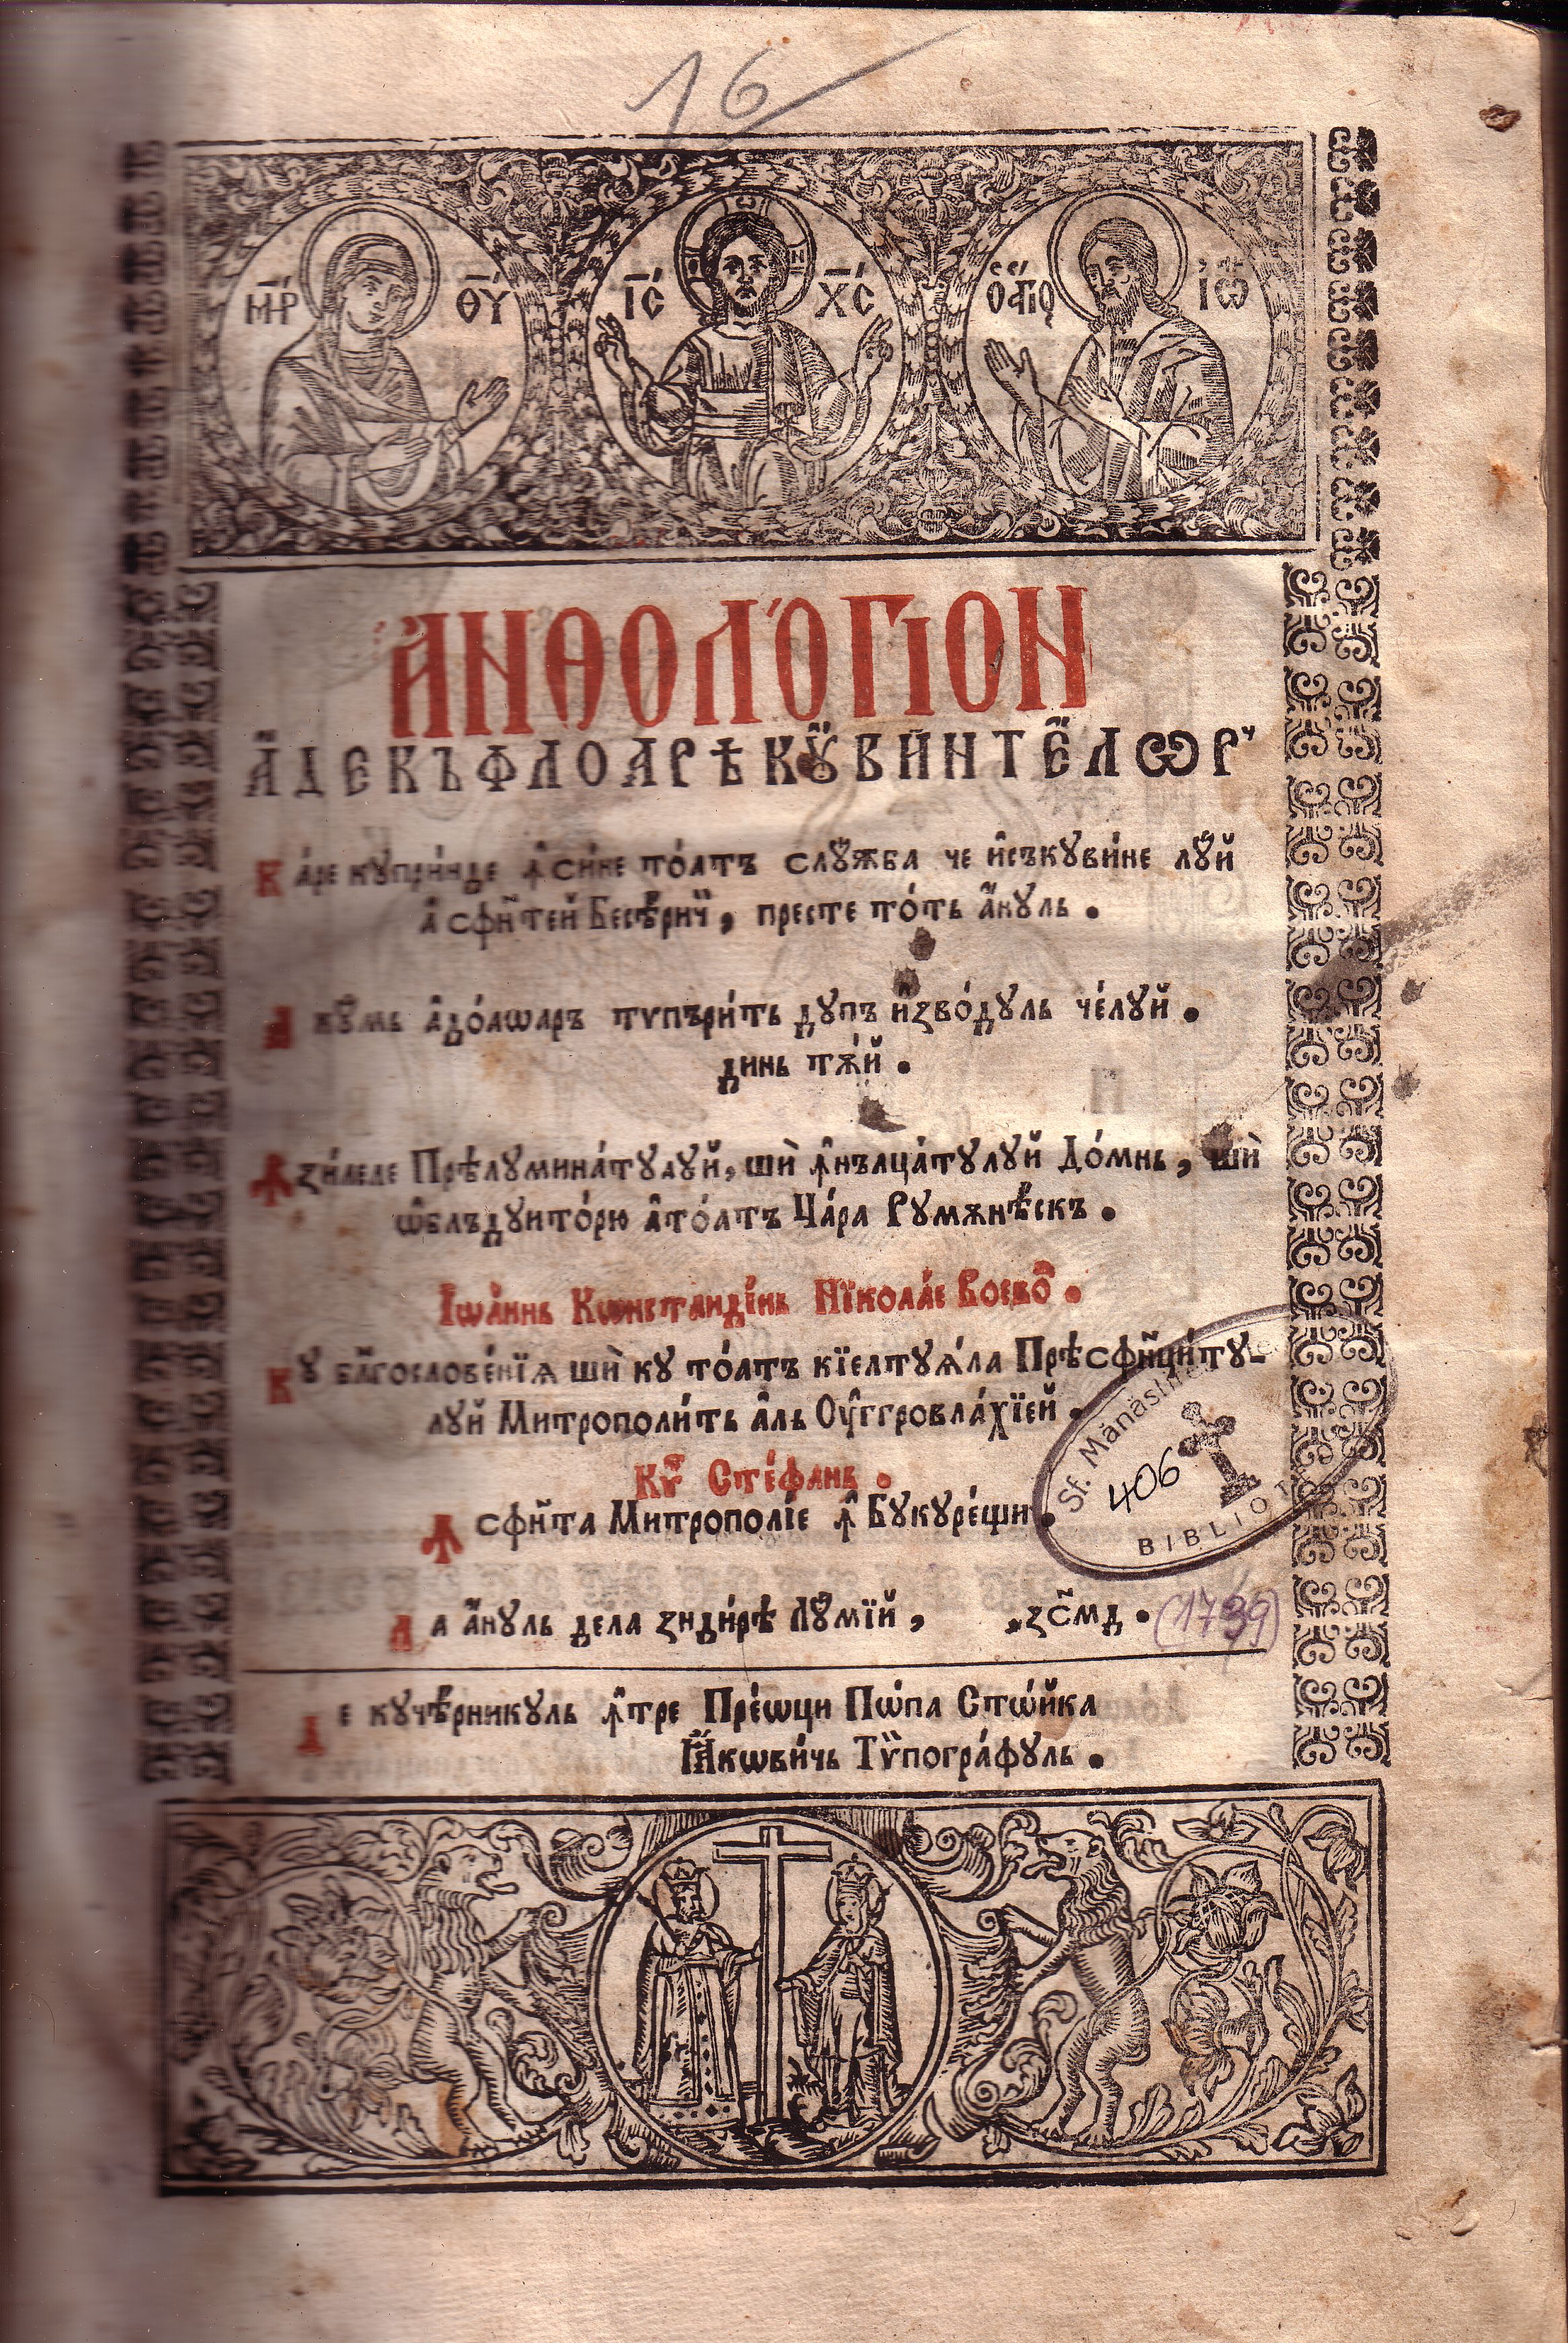 16
М҃Р ѲУ҃ І҃С Х҃С Ѻ҆АГІО ІѠ
А҆НѲОЛО́ГІОН
А҆ДЕКЪ ФЛОАРѢ КꙊВИНТЕЛѠР
Ка́ре купри́нде ꙟ҆си́не то́атъ слꙋ́жба че и҆съкуви́не лꙋ́й
а҆ сфн҃тей Бесѣ́ричй, престе то́ть а҆нуль.
А кꙋ́мь а҆до́аѡаръ тѵпъри́ть дупъ и҆зво́дуль че́луй.
динь тѫ́й.
Ꙟ зи́леле Прѣлумина́тулуй, шѝ ꙟ҆нълца́тулуй До́мнь, шѝ
ѡ҆блъдуито́рю а҆то́атъ Ца́ра Румѫнѣ́скъ.
Іѡа́ннь Кѡнстанді́нь Нїкола́е Воево҃.
Ку бл҃гослове́нїѧ шѝ ку то́атъ кїелтуѧ́ла Прѣсфн҃ци́ту-
луй Митрополи́ть а҆ль Оу҆ггровла́хїей.
Кѵ҃ Сте́фань.
Ꙟ сфн҃та Митрополі́е ꙟ҆ Букуре́щи.
Ла а҆нуль дела зиди́рѣ Лꙋ́мїй, ҂зс҃мд. (1739)
Де кучѣ́рникуль ꙟ҆тре Прео́ѡци Пѡ́па Стѡ́йка
Ꙗ҆кѡви́чь Тѵпогра́фуль.
Sf. Mănăstire
406
BIBLIOT